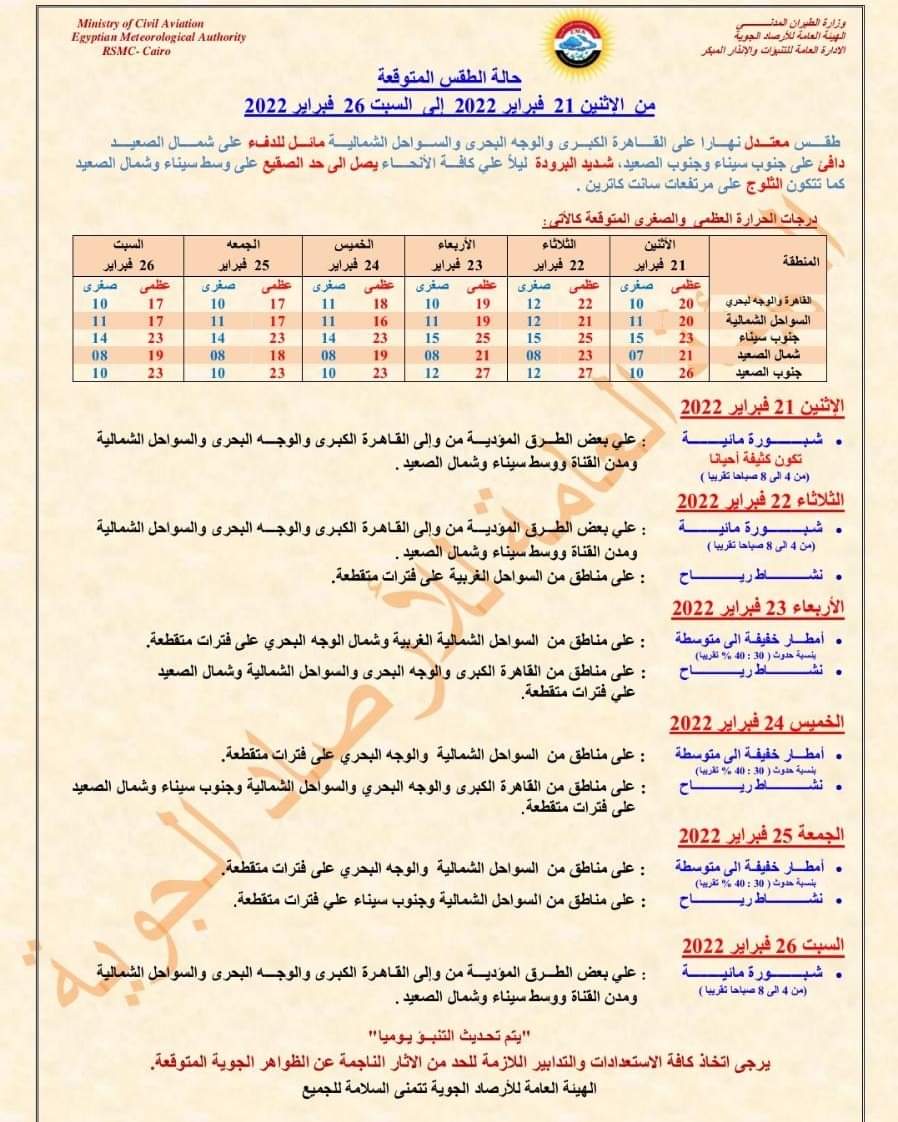 Ministry of Civil Aviation
Egyptian Meteorological Authority
RSMC- Cairo
وزارة الطيران المدنـــــى
الهيئة العامة للأرصاد الجوية
الادارة العامة للتنبؤات والإنذار المبكر
حالة الطقس المتوقعة
من الإثنين 21 فبراير 2022 إلى السبت 26 فبراير 2022
طقــس معتــدل نهـارا على القــاهرة الكبـرى والوجه البحرى والســواحل الشماليـة مائــل للدفء على شمــال الصعيــد
دافئ على جنوب سيناء وجنوب الصعيد، شـديد البرودة ليلاً علي كافـة الأنحـاء يصل الى حد الصقيع على وسط سيناء وشمال الصعيد
كما تتكون الثلوج على مرتفعات سانت كاترين .
درجات الحرارة العظمى والصغرى المتوقعة كالآتى:
المنطقة الأثنين الثلاثاء الأربعاء الخميس الجمعه السبت
21 فبراير 22 فبراير 23 فبراير 24 فبراير 25 فبراير 26 فبراير
عظمى صغرى عظمى صغرى عظمى صغرى عظمى صغرى عظمى صغرى عظمى صغرى
القاهرة والوجه لبحري 20 10 22 12 19 10 18 11 17 10 17 10
السواحل الشمالية 20 11 21 12 19 11 16 11 17 11 17 11
جنوب سيناء 23 15 25 15 25 15 23 14 23 14 23 14
شمال الصعيد 21 07 23 08 21 08 19 08 18 08 19 08
جنوب الصعيد 26 10 27 12 27 12 23 10 23 10 23 10
الإثنين 21 فبراير 2022
• شبــــورة مائيــــة : علي بعض الطـرق المؤديـة من وإلى القـاهرة الكبـرى والوجـه البحرى والسواحل الشمالية
تكون كثيفة أحيانا ومدن القناة ووسط سيناء وشمال الصعيد .
(من 4 الى 8 صباحا تقريبا )
الثلاثاء 22 فبراير 2022
• شبــــورة مائيــــة : علي بعض الطـرق المؤديـة من وإلى القـاهرة الكبـرى والوجـه البحرى والسواحل الشمالية
(من 4 الى 8 صباحا تقريبا ) ومدن القناة ووسط سيناء وشمال الصعيد .
• نشـــــاط ريـــــاح : على مناطق من السواحل الغربية على فترات متقطعة.
الأربعاء 23 فبراير 2022
• أمطـار خفيفـة الى متوسطة : على مناطق من السواحل الشمالية الغربية وشمال الوجه البحري على فترات متقطعة.
بنسبة حدوث ( 30 : 40 % تقريبا)
• نشـــــاط ريـــــاح : على مناطق من القاهرة الكبرى والوجه البحرى والسواحل الشمالية وشمال الصعيد
علي فترات متقطعة.
الخميس 24 فبراير 2022
• أمطـار خفيفـة الى متوسطة : على مناطق من السواحل الشمالية والوجه البحري على فترات متقطعة.
بنسبة حدوث ( 30 : 40 % تقريبا)
• نشـــــاط ريـــــاح : على مناطق من القاهرة الكبرى والوجه البحري والسواحل الشمالية وجنوب سيناء وشمال الصعيد
على فترات متقطعة.
الجمعة 25 فبراير 2022
• أمطـار خفيفـة الى متوسطة : على مناطق من السواحل الشمالية والوجه البحري على فترات متقطعة.
بنسبة حدوث ( 30 : 40 % تقريبا)
• نشـــــاط ريـــــاح : على مناطق من السواحل الشمالية وجنوب سيناء علي فترات متقطعة.
السبت 26 فبراير 2022
• شبــــورة مائيــــة : علي بعض الطـرق المؤديـة من وإلى القـاهرة الكبـرى والوجـه البحرى والسواحل الشمالية
(من 4 الى 8 صباحا تقريبا ) ومدن القناة ووسط سيناء وشمال الصعيد .
"يتم تحديث التنبـؤ يـوميا"
يرجى اتخاذ كافة الاستعدادات والتدابير اللازمة للحد من الآثار الناجمة عن الظواهر الجوية المتوقعة.
الهيئة العامة للأرصاد الجوية تتمنى السلامة للجميع
الهيئة العامة للأرصاد الجوية